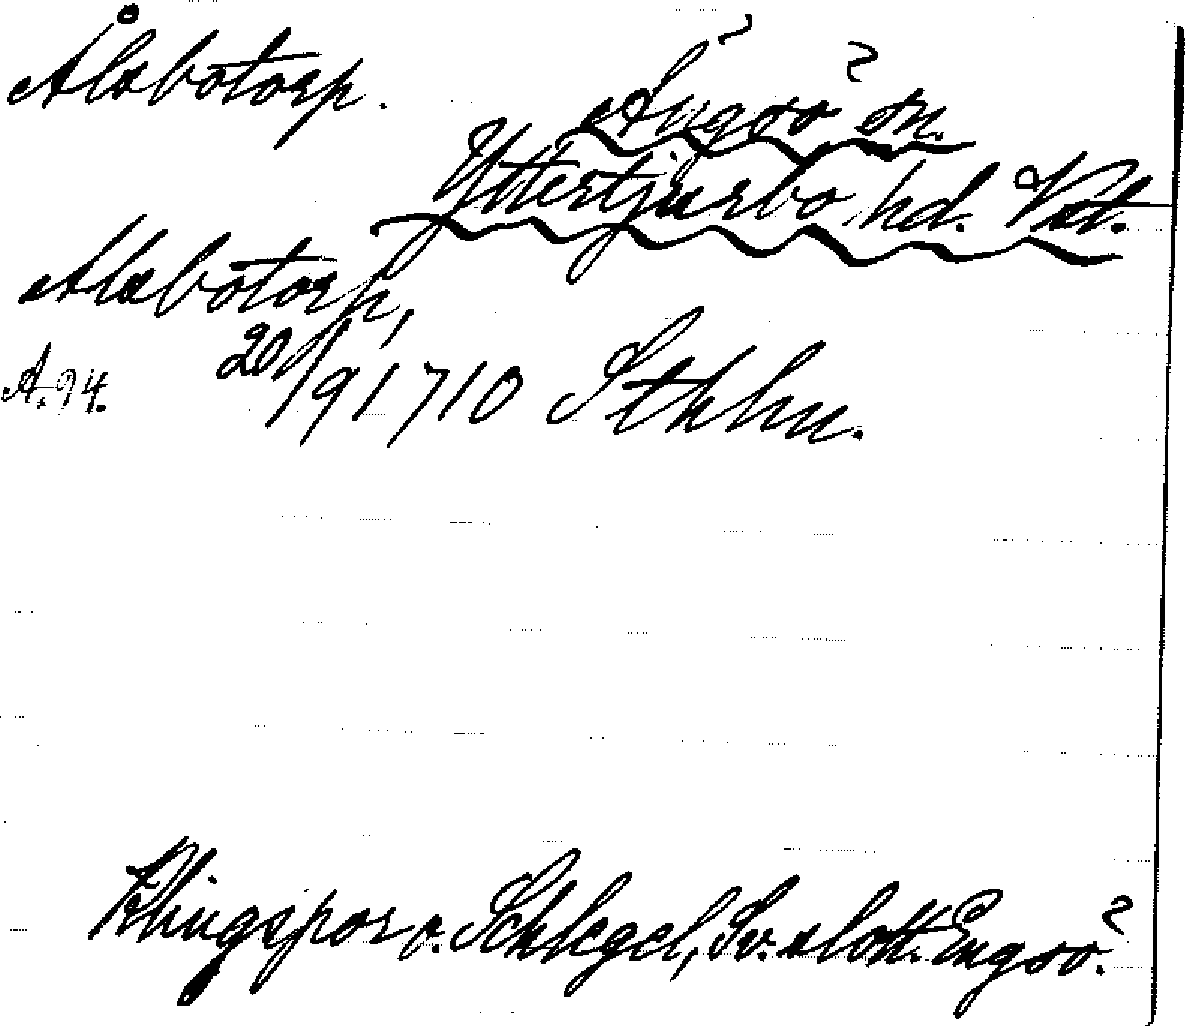 Ålabotorp.
Ängsö sn.
Yttertjurbo hd. Vstl.
Alabotorp,
A. 94. 20/9 1710 Sthlm.
Klingspor o. Schlegel, Sv. slott. Engsö.